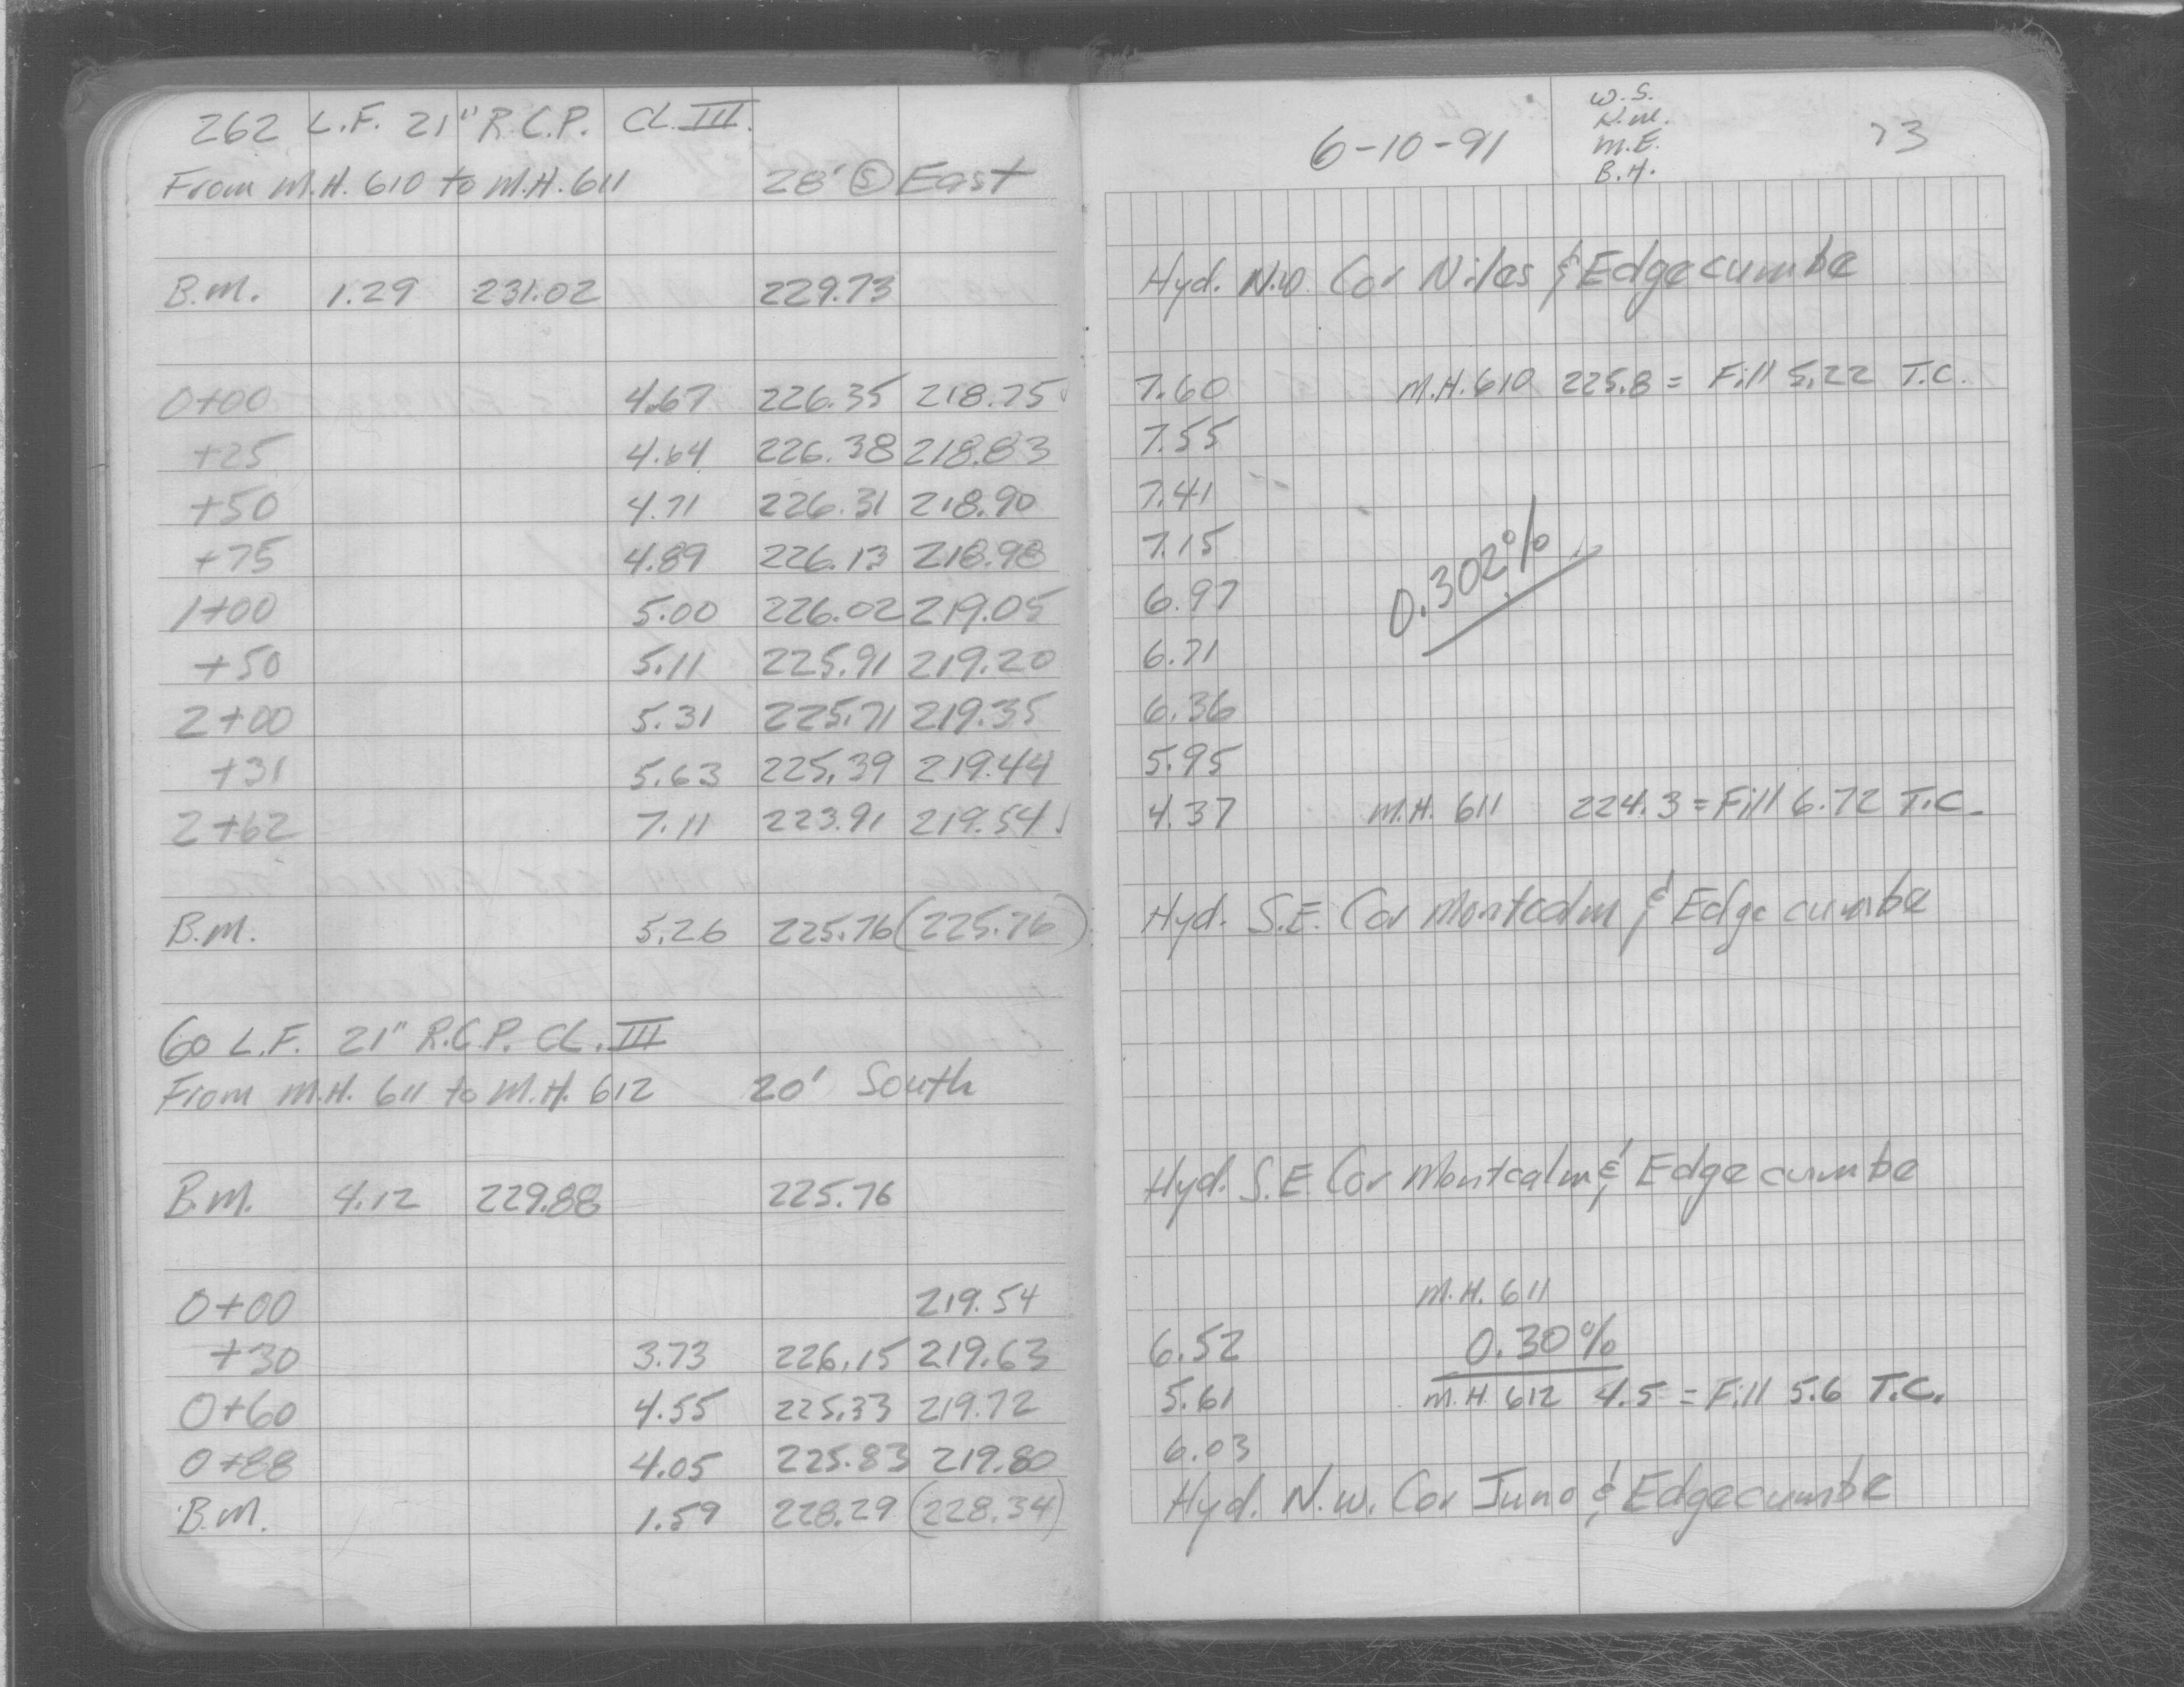 262 L.F. 21" R.C.P. CL. III
From M.H. 610 to M.H. 611 28' S East
B.M. 1.29 231.02 229.73
0+00 4.67 226.35 218.75
+25 4.64 226.38 218.83
+50 4.71 226.31 218.90
+75 4.89 226.13 218.98
1+00 5.00 226.02 219.05
+50 5.11 225.91 219.20
2+00 5.31 225.71 219.35
+31 5.63 225.39 219.44
2+62 7.11 223.91 219.54
B.M. 5.26 225.76 (225.76)
60 L.F. 21" R.C.P. CL. III
From M.H. 611 to M.H. 612 20' South
B.M. 4.12 229.88 225.76
0+00 219.54
+30 3.73 226.15 219.63
0+60 4.55 225.33 219.72
0+88 4.05 225.83 219.80
B.M. 1.59 228.29 (228.34)
W.S.
N.M.
6-10-91 M.E. 73
B.H.
Hyd. N.W. Cor Niles & Edgecumbe
7.60 M.H. 610 225.8 = Fill 5.22 T.C.
7.55
7.41
7.15
0.302%
6.97
6.71
6.36
5.95
4.37 M.H. 611 224.3 = Fill 6.72 T.C.
Hyd. S.E. Cor Montcalm & Edgecumbe
Hyd. S.E. Cor Montcalm & Edgecumbe
M.H. 611
6.52 0.30%
5.61 M.H. 612 4.5 = Fill 5.6 T.C.
6.03
Hyd. N.W. Cor Juno & Edgecumbe